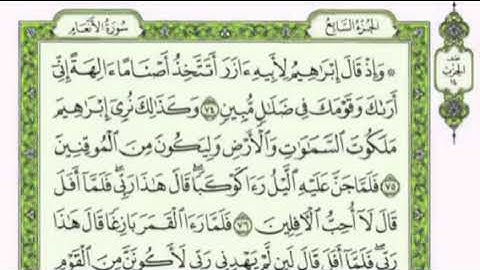 سُورَةُ الأَنْعَام
الجُزْءُ السَّابِعُ
۞ وَإِذْ قَالَ إِبْرَٰهِيمُ لِأَبِيهِ ءَازَرَ أَتَتَّخِذُ أَصْنَامًا ءَالِهَةً إِنِّىٓ
أَرَىٰكَ وَقَوْمَكَ فِى ضَلَٰلٍ مُّبِينٍ ٧٤ وَكَذَٰلِكَ نُرِىٓ إِبْرَٰهِيمَ
مَلَكُوتَ ٱلسَّمَٰوَٰتِ وَٱلْأَرْضِ وَلِيَكُونَ مِنَ ٱلْمُوقِنِينَ
٧٥ فَلَمَّا جَنَّ عَلَيْهِ ٱلَّيْلُ رَءَا كَوْكَبًا قَالَ هَٰذَا رَبِّى فَلَمَّآ أَفَلَ
قَالَ لَآ أُحِبُّ ٱلْءَافِلِينَ ٧٦ فَلَمَّا رَءَا ٱلْقَمَرَ بَازِغًا قَالَ هَٰذَا
رَبِّى فَلَمَّآ أَفَلَ قَالَ لَئِن لَّمْ يَهْدِنِى رَبِّى لَأَكُونَنَّ مِنَ ٱلْقَوْمِ
نصف
الحزب
١٤